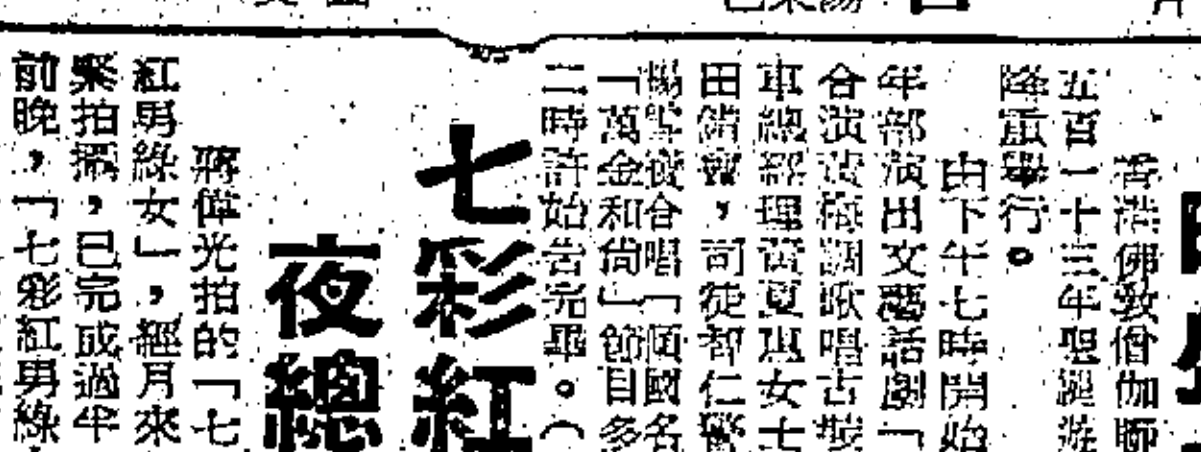 香港佛教僧伽聯
五百一十三年聖誕遊
隆重舉行。
由下午七時開始
年部演出文藝話劇「
合演黃梅調歌唱古裝
車總經理黃夏惠女士
田寶,司徒智仁醫
合唱「傾國名
「萬金和尚」節目多
二時許始告完畢。(
七彩紅
夜總
蔣偉光拍的「七
紅男綠女」,經月來
緊拍攝,已完成過半
前晚,「七彩紅男綠